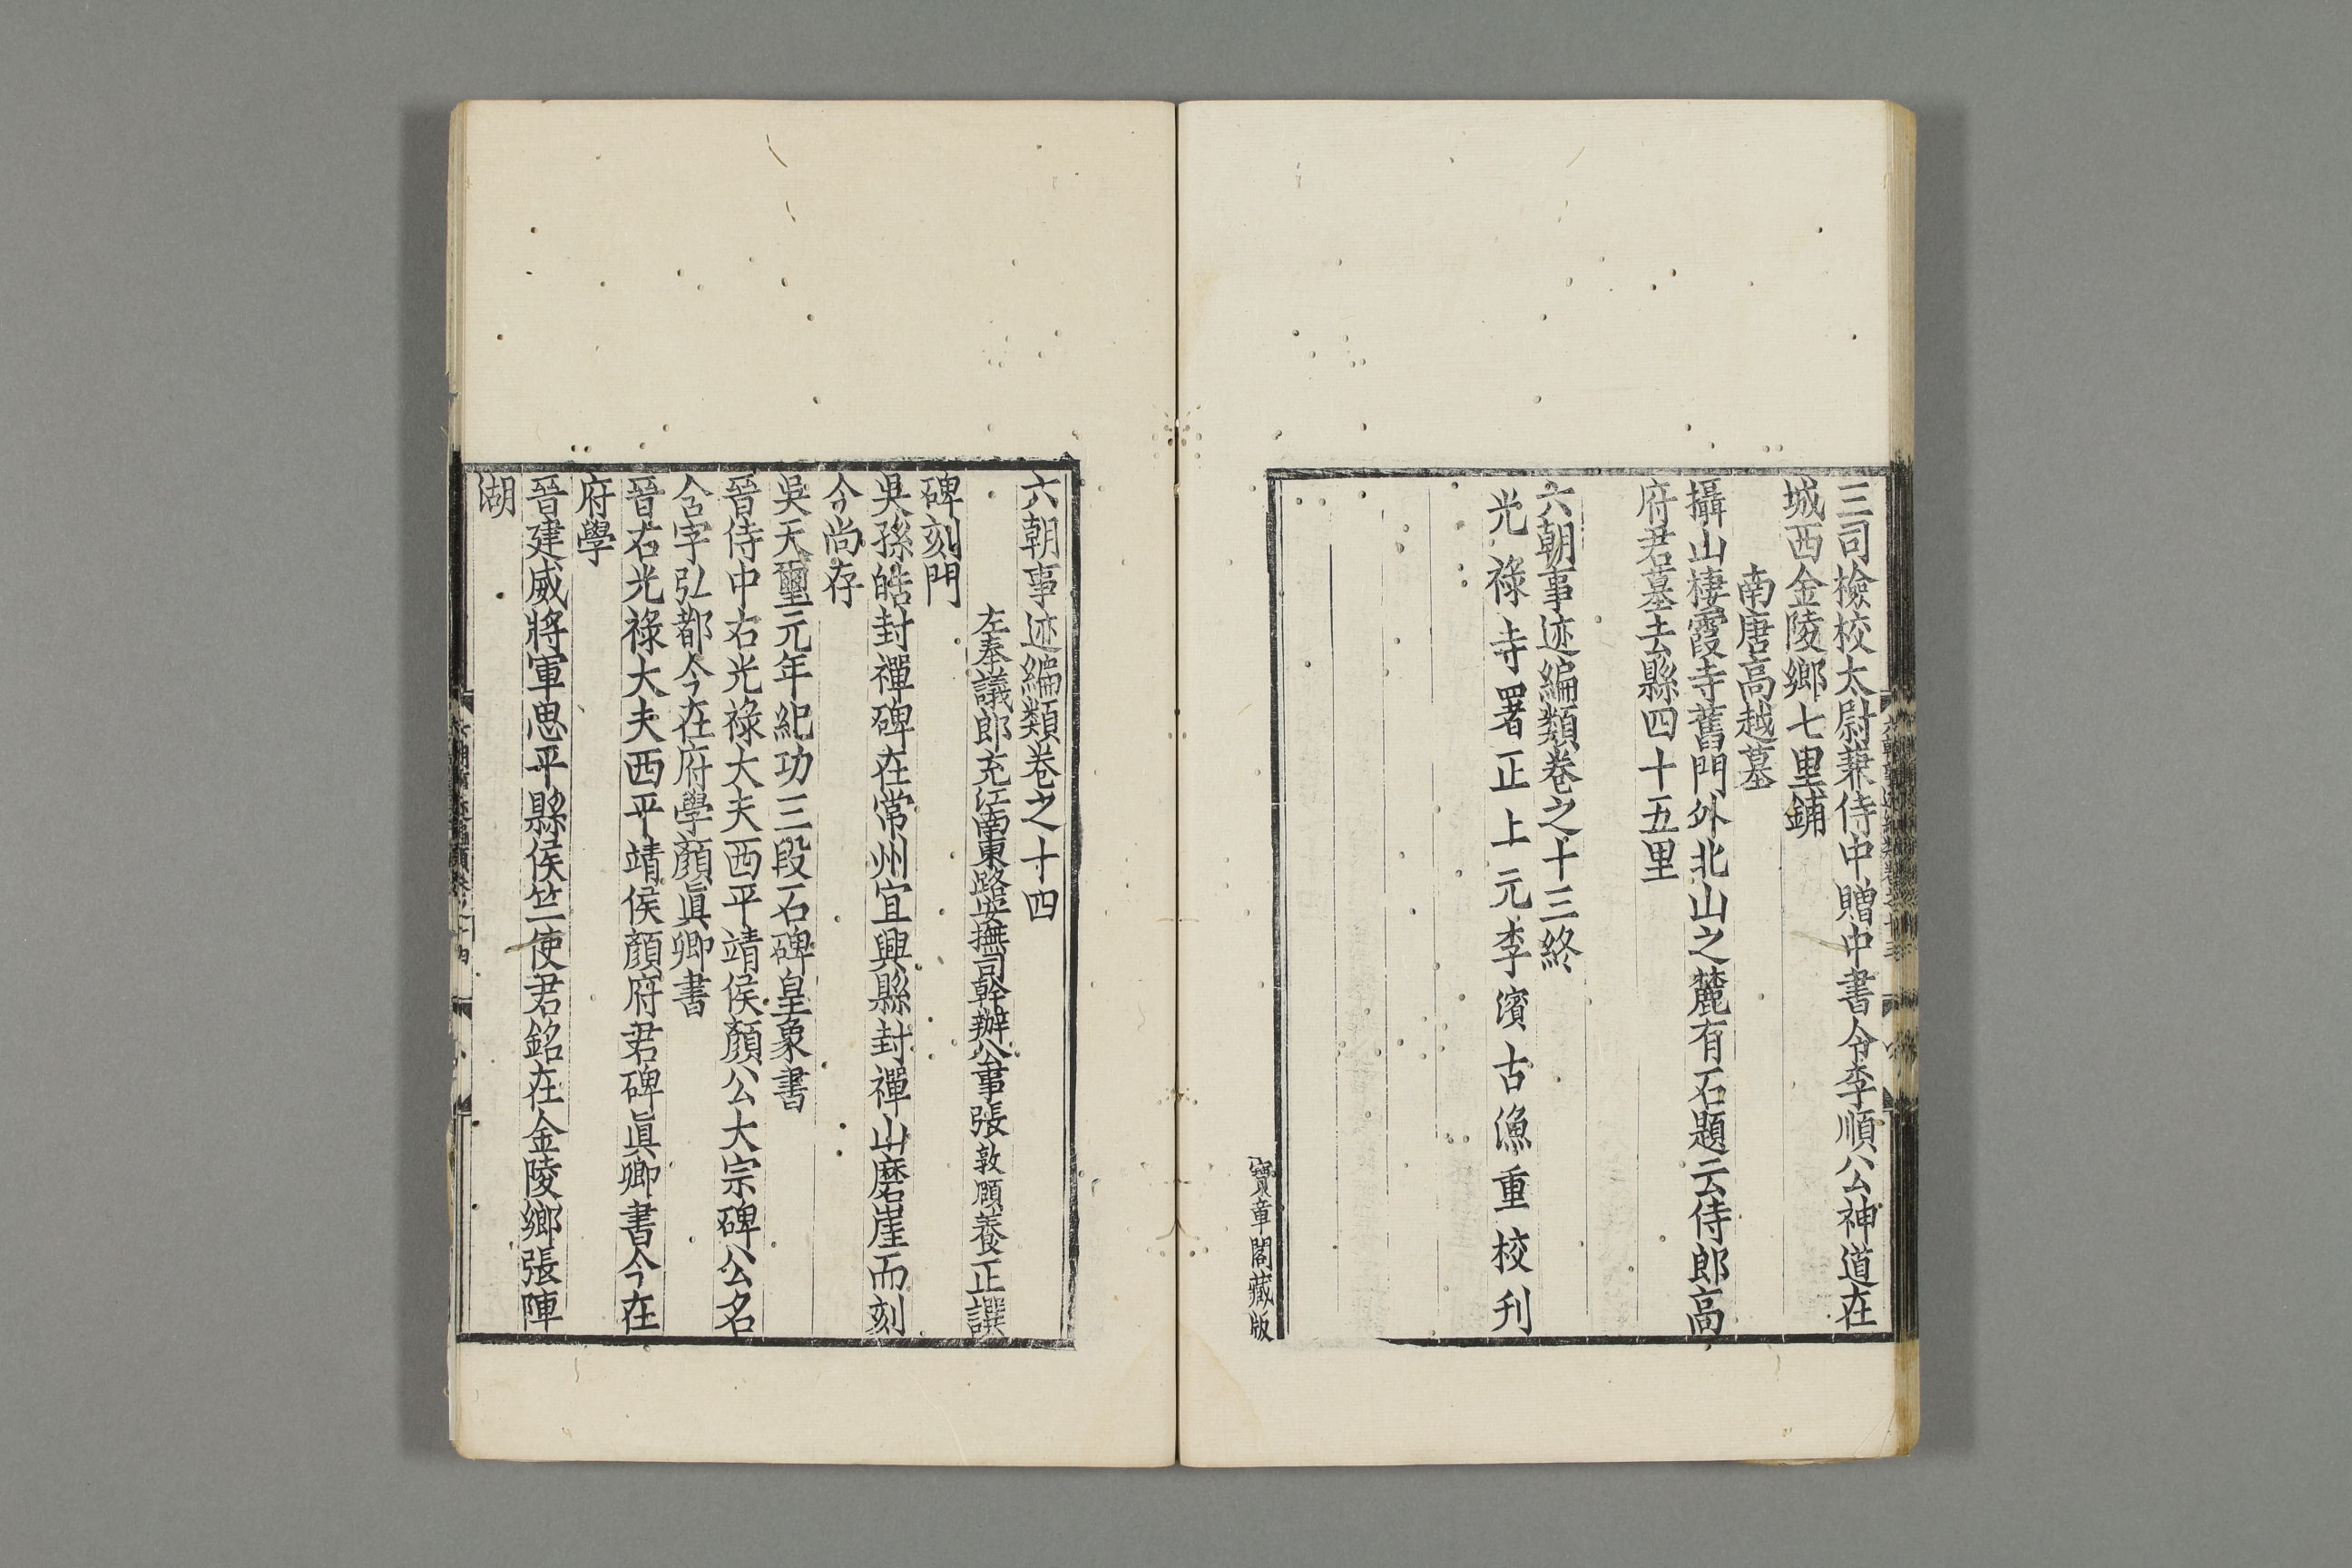 三司檢校太尉兼侍中贈中書令李順公神道在
城西金陵鄉七里鋪
南唐高越墓
攝山棲霞寺舊門外北山之麓有石題云侍郎高
府君墓去縣四十五里
六朝事迹編類卷之十三終
光祿寺署正上元李濱古漁重校刋
寶章閣藏版
六朝事迹編類卷之十四
左奉議郎充江南東路安撫司幹辦公事張敦頤養正譔
碑刻門
吳孫皓封禪碑在常州宜興縣封禪山磨崖而刻
今尚存
吳天璽元年紀功三段石碑皇象書
晉侍中右光祿大夫西平靖侯顏公大宗碑公名
含字弘都今在府學顏眞卿書
晉右光祿大夫西平靖侯顏府君碑眞卿書今在
府學
晉建威將軍思平縣侯竺使君銘在金陵鄉張陣
湖